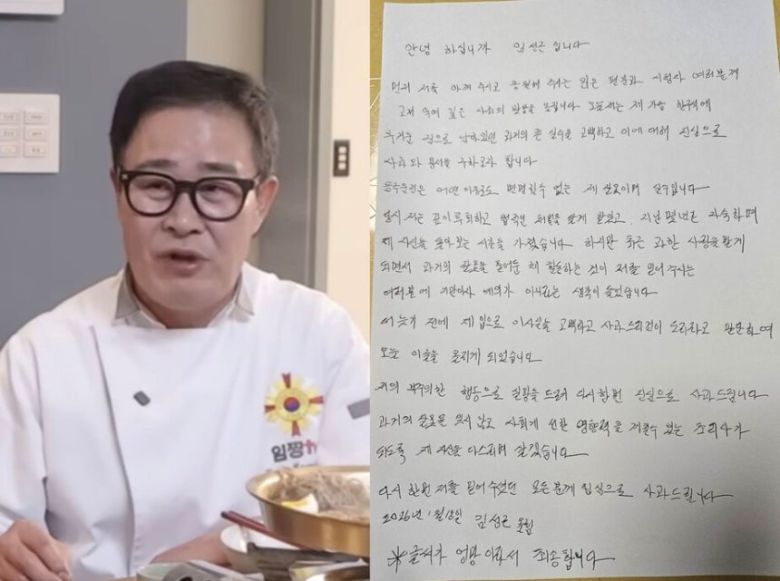 임짱
안녕 하십니까 임성근 입니다
먼저 저를 아껴 주시고 응원해 주시는 많은 팬분과 시청자 여러분께
고개 숙여 깊은 사죄의 말씀을 올립니다 오늘 저는 제 가슴 한구석에
무거운 짐으로 남아있던 과거의 큰 실수를 고백하고 이에 대해 진심으로
사과와 용서를 구하고자 합니다
음주운전은 어떤 이유로도 변명할수 없는 제 잘못이며 실수입니다
당시 저는 깊이 후회하고 법적인 처벌을 달게 받았고 지난 몇년간 자숙하며
제 자신을 돌아보는 시간을 가졌습니다 하지만 최근 과한 사랑을 받게
되면서 과거의 잘못을 묻어둔 채 활동하는 것이 저를 믿어주시는
여러분에 기만이자 예의가 아니라는 생각이 들었습니다
더 늦기 전에 제 입으로 이사실을 고백하고 사과드리는것이 도리라고 판단하여
오늘 이글을 올리게 되었습니다
저의 부주의한 행동으로 실망을 드려 다시한번 진심으로 사과드립니다
과거의 잘못을 잊지 않고 사회에 선한 영향력을 끼칠수 있는 조리사가
되도록 제 자신을 다스리며 살겠습니다
다시 한번 저를 믿어 주셨던 모든 분께 진심으로 사과드립니다
2026년 1월 임성근 올림
※글씨가 엉망 이라서 죄송합니다